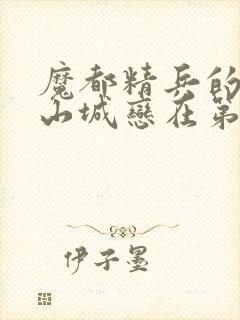 魔都精兵的
山城戀在第
伊子墨